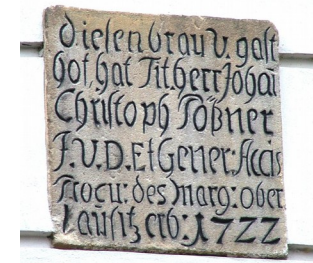 diesen brau v. gast
hof hat Tit: herr Johan
Christoph Pößner
J.V.D. Et Gener: Accis
Procur: des Marg: ober
Lausitz erb: 1722